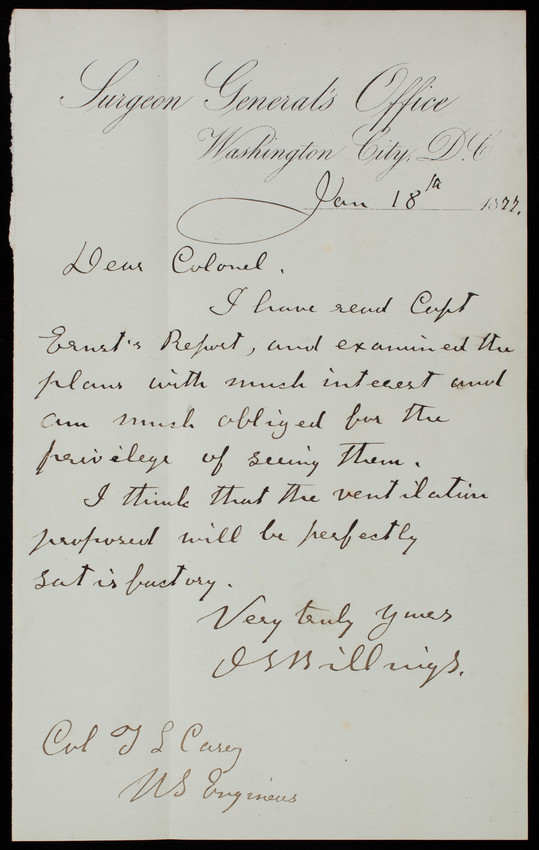 Surgeon General's Office
Washington City, D.C.
Jan 18th 1877.
Dear Colonel.
I have read Capt
Ernst's Report, and examined the
plans with much interest and
am much obliged for the
privilege of seeing them.
I think that the ventilation
proposed will be perfectly
satisfactory.
Very truly yours
J S Billings.
Col T L Casey
US Engineers